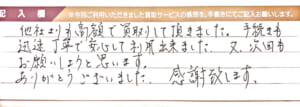 記入欄
※今回ご利用いただきました買取サービスの感想を、手書きにてご記入お願いします。
他社よりも高額で買取りして頂きました。手続きも
迅速丁寧で安心して利用出来ました。又、次回も
お願いしようと思います。
ありがとうございました。感謝致します。